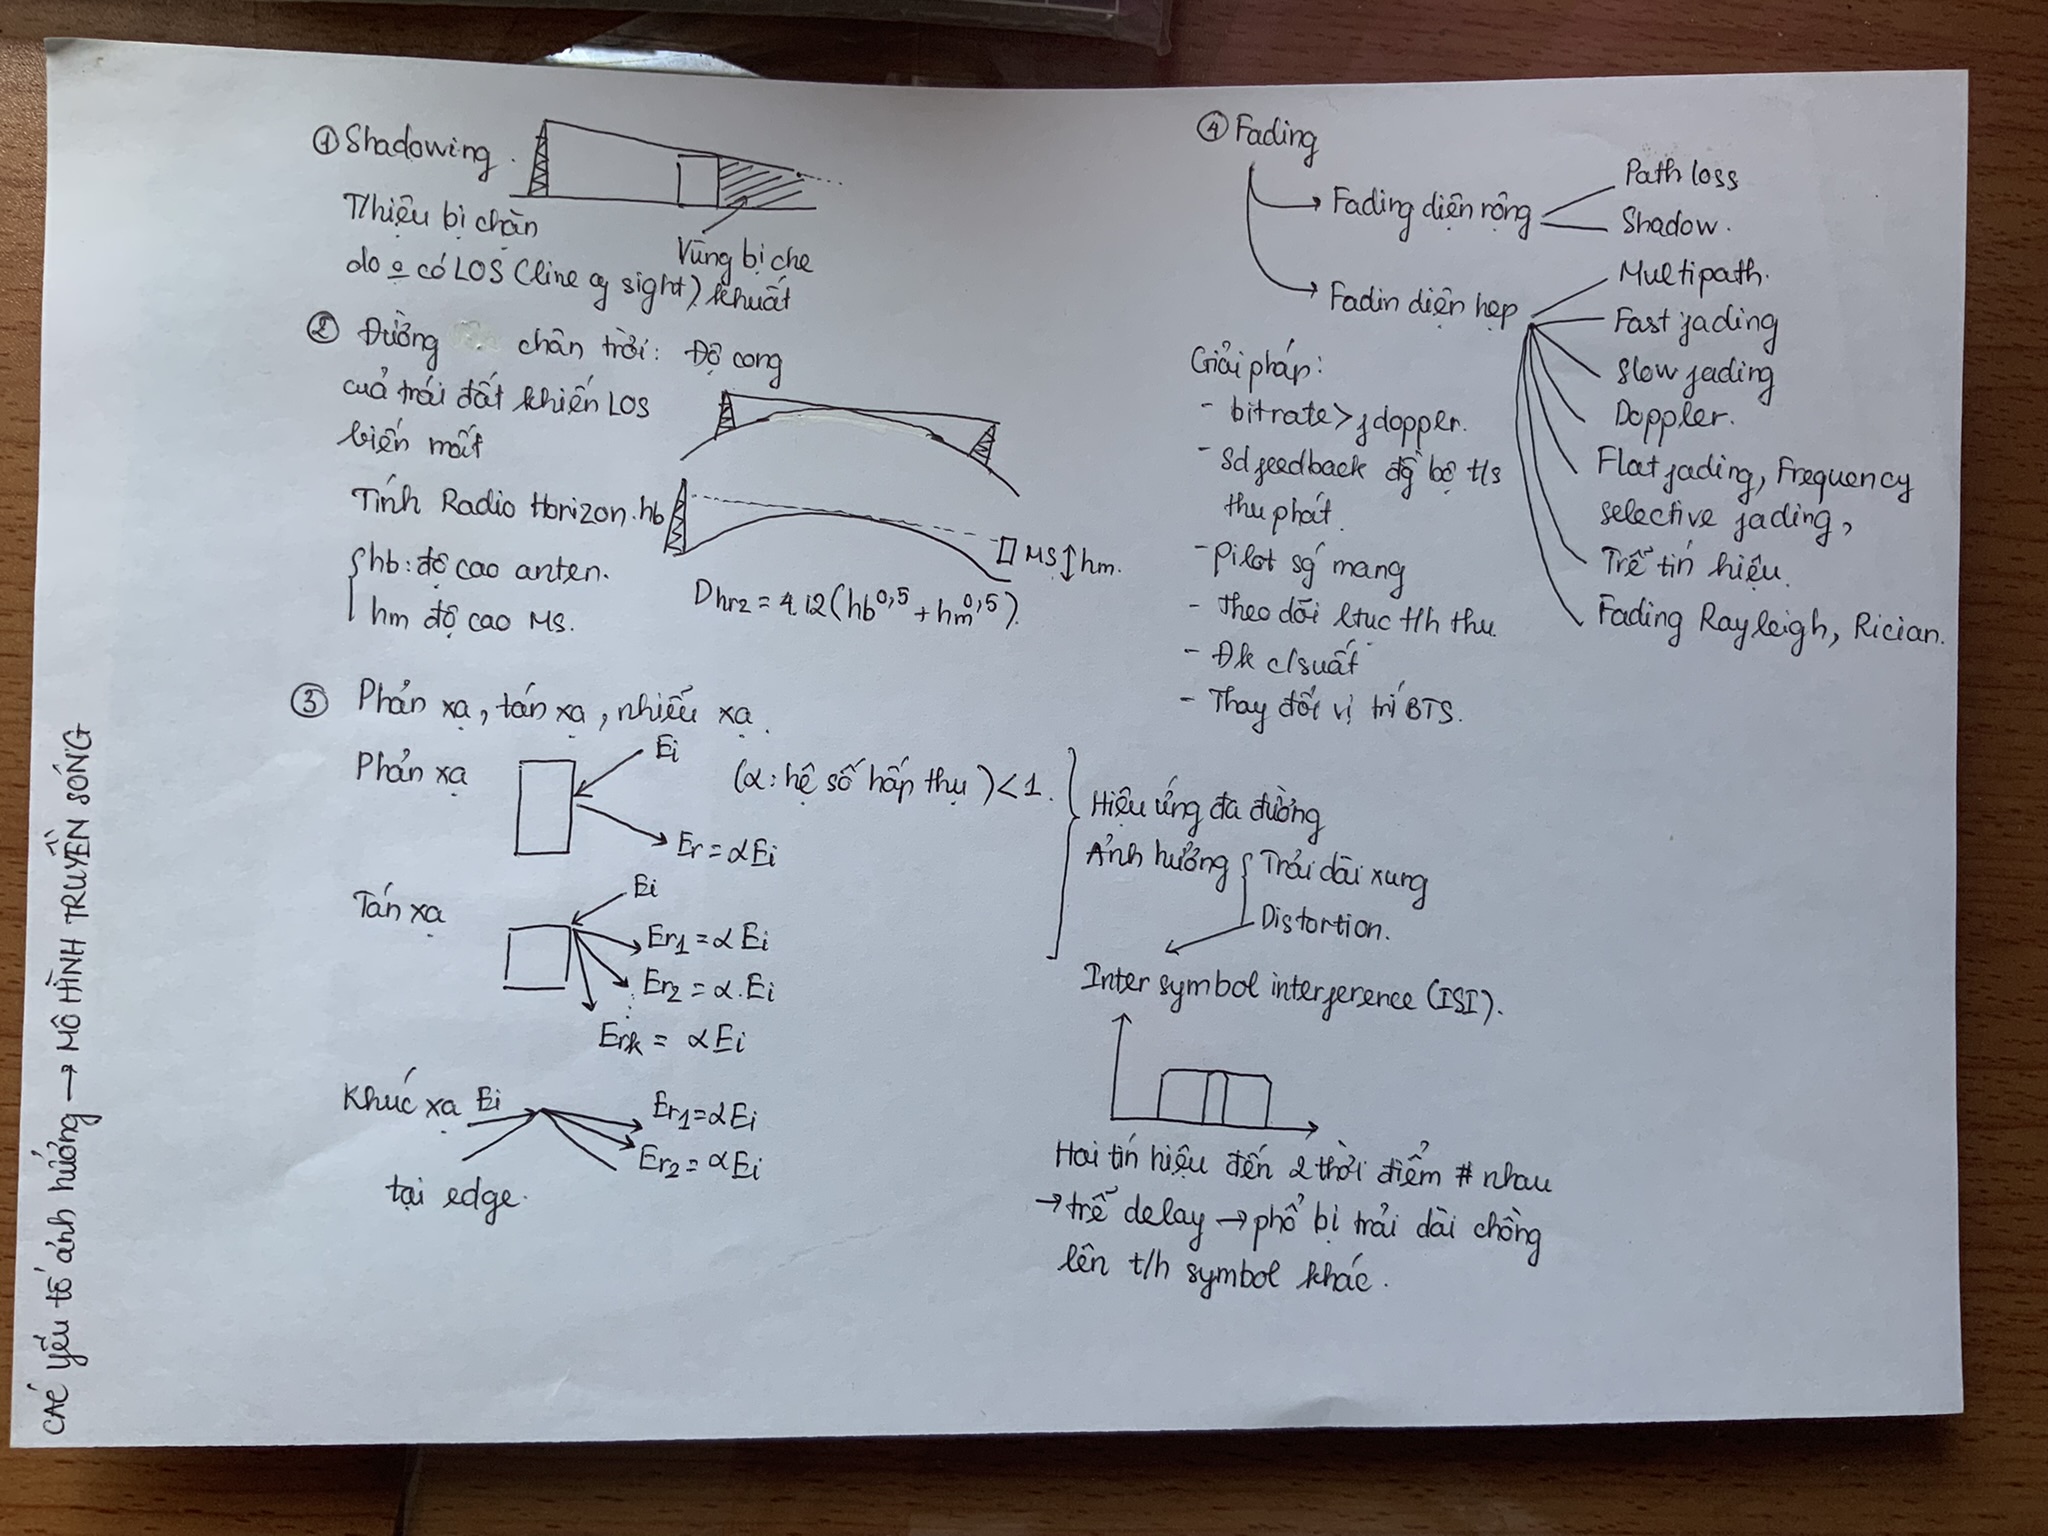 CÁC yếu tố ảnh hưởng → MÔ HÌNH TRUYỀN SÓNG
① Shadowing.
T/hiệu bị chặn
do o có LOS (line of sight)
Vùng bị che
khuất
② Đường chân trời: Độ cong
cuả trái đất khiến LOS
biến mất
Tính Radio Horizon.
hb
hb: độ cao anten.
hm độ cao MS.
MS hm.
Dhrz = 4,12(hb^0,5 + hm^0,5).
③ Phản xạ, tán xạ, nhiễu xạ.
Phản xạ
Ei
(α: hệ số hấp thụ) < 1.
Er = αEi
Tán xạ
Ei
Er1 = α Ei
Er2 = α.Ei
Erk = αEi
Khúc xạ Ei
Er1 = αEi
Er2 = αEi
tại edge.
Hiệu ứng đa đường
Ảnh hưởng
Trải dài xung
Distortion.
Inter symbol interference (ISI).
Hai tín hiệu đến 2 thời điểm # nhau
→ trễ delay → phổ bị trải dài chồng
lên t/h symbol khác.
④ Fading
→ Fading diện rộng
Path loss
Shadow.
→ Fadin diện hẹp
Multipath.
Fast fading
Slow fading
Doppler.
Flat fading, Frequency
selective fading,
Trễ tín hiệu.
Fading Rayleigh, Rician.
Giải pháp:
- bitrate > f dopper.
- Sd feedback để bộ t/s
thu phát.
- Pilot sg mang
- Theo dõi ltục t/h thu.
- Đk c/suất
- Thay đổi vị trí BTS.